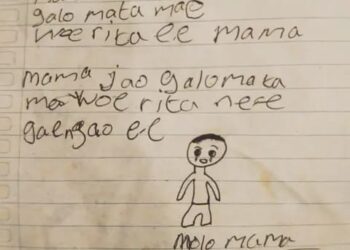 galo mata mae
woe rita e.e mama
mama jao galomata
woe rita nese
gaengao e.e
molo mama